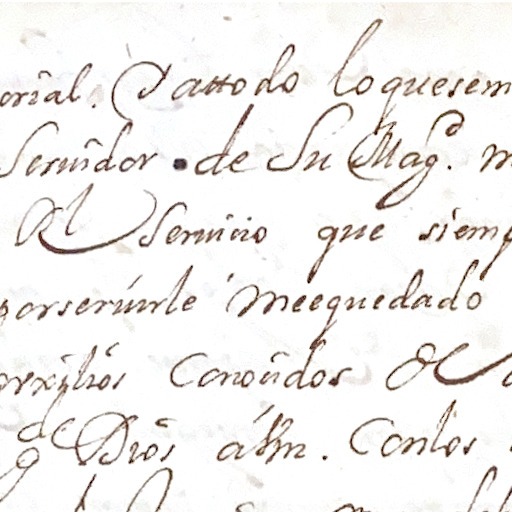 orial. Y attodo loquesem
Servidor de Su Mag.d m
Rl Servicio que siemp
porservirle meequedado
Conosidos De
g.de Dios á Vm. Conlos